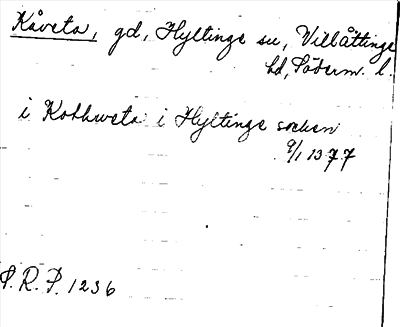 Kåveta, gd, Hyltinge sn, Villåttinge
hd, Söderm. l.
i Kothweta i Hyltinge socken
9/1 1377
S.R.P. 1236